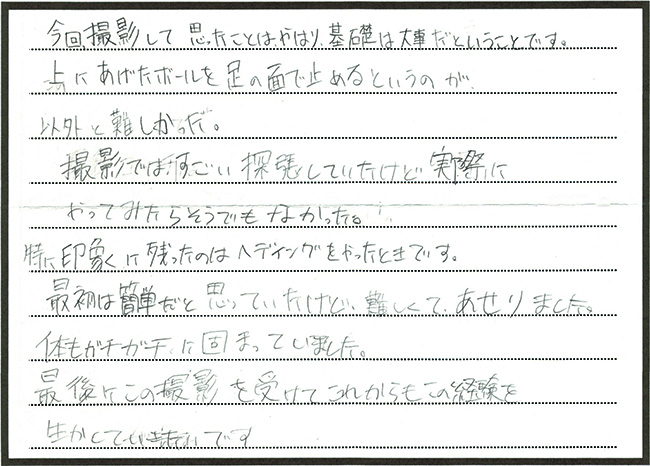 今回、撮影して思ったことは、やはり、基礎は大事だということです。
上にあげたボールを足の面で止めるというのが、
以外と難しかった。
撮影では、すごい していたけど、実際に
やってみたらそうでもなかった。
特に印象に残ったのはヘディングをやったときです。
最初は簡単だと思っていたけど、難しくて、あせりました。
体もガチガチに固まっていました。
最後にこの撮影を受けてこれからもこの経験を
生かして です